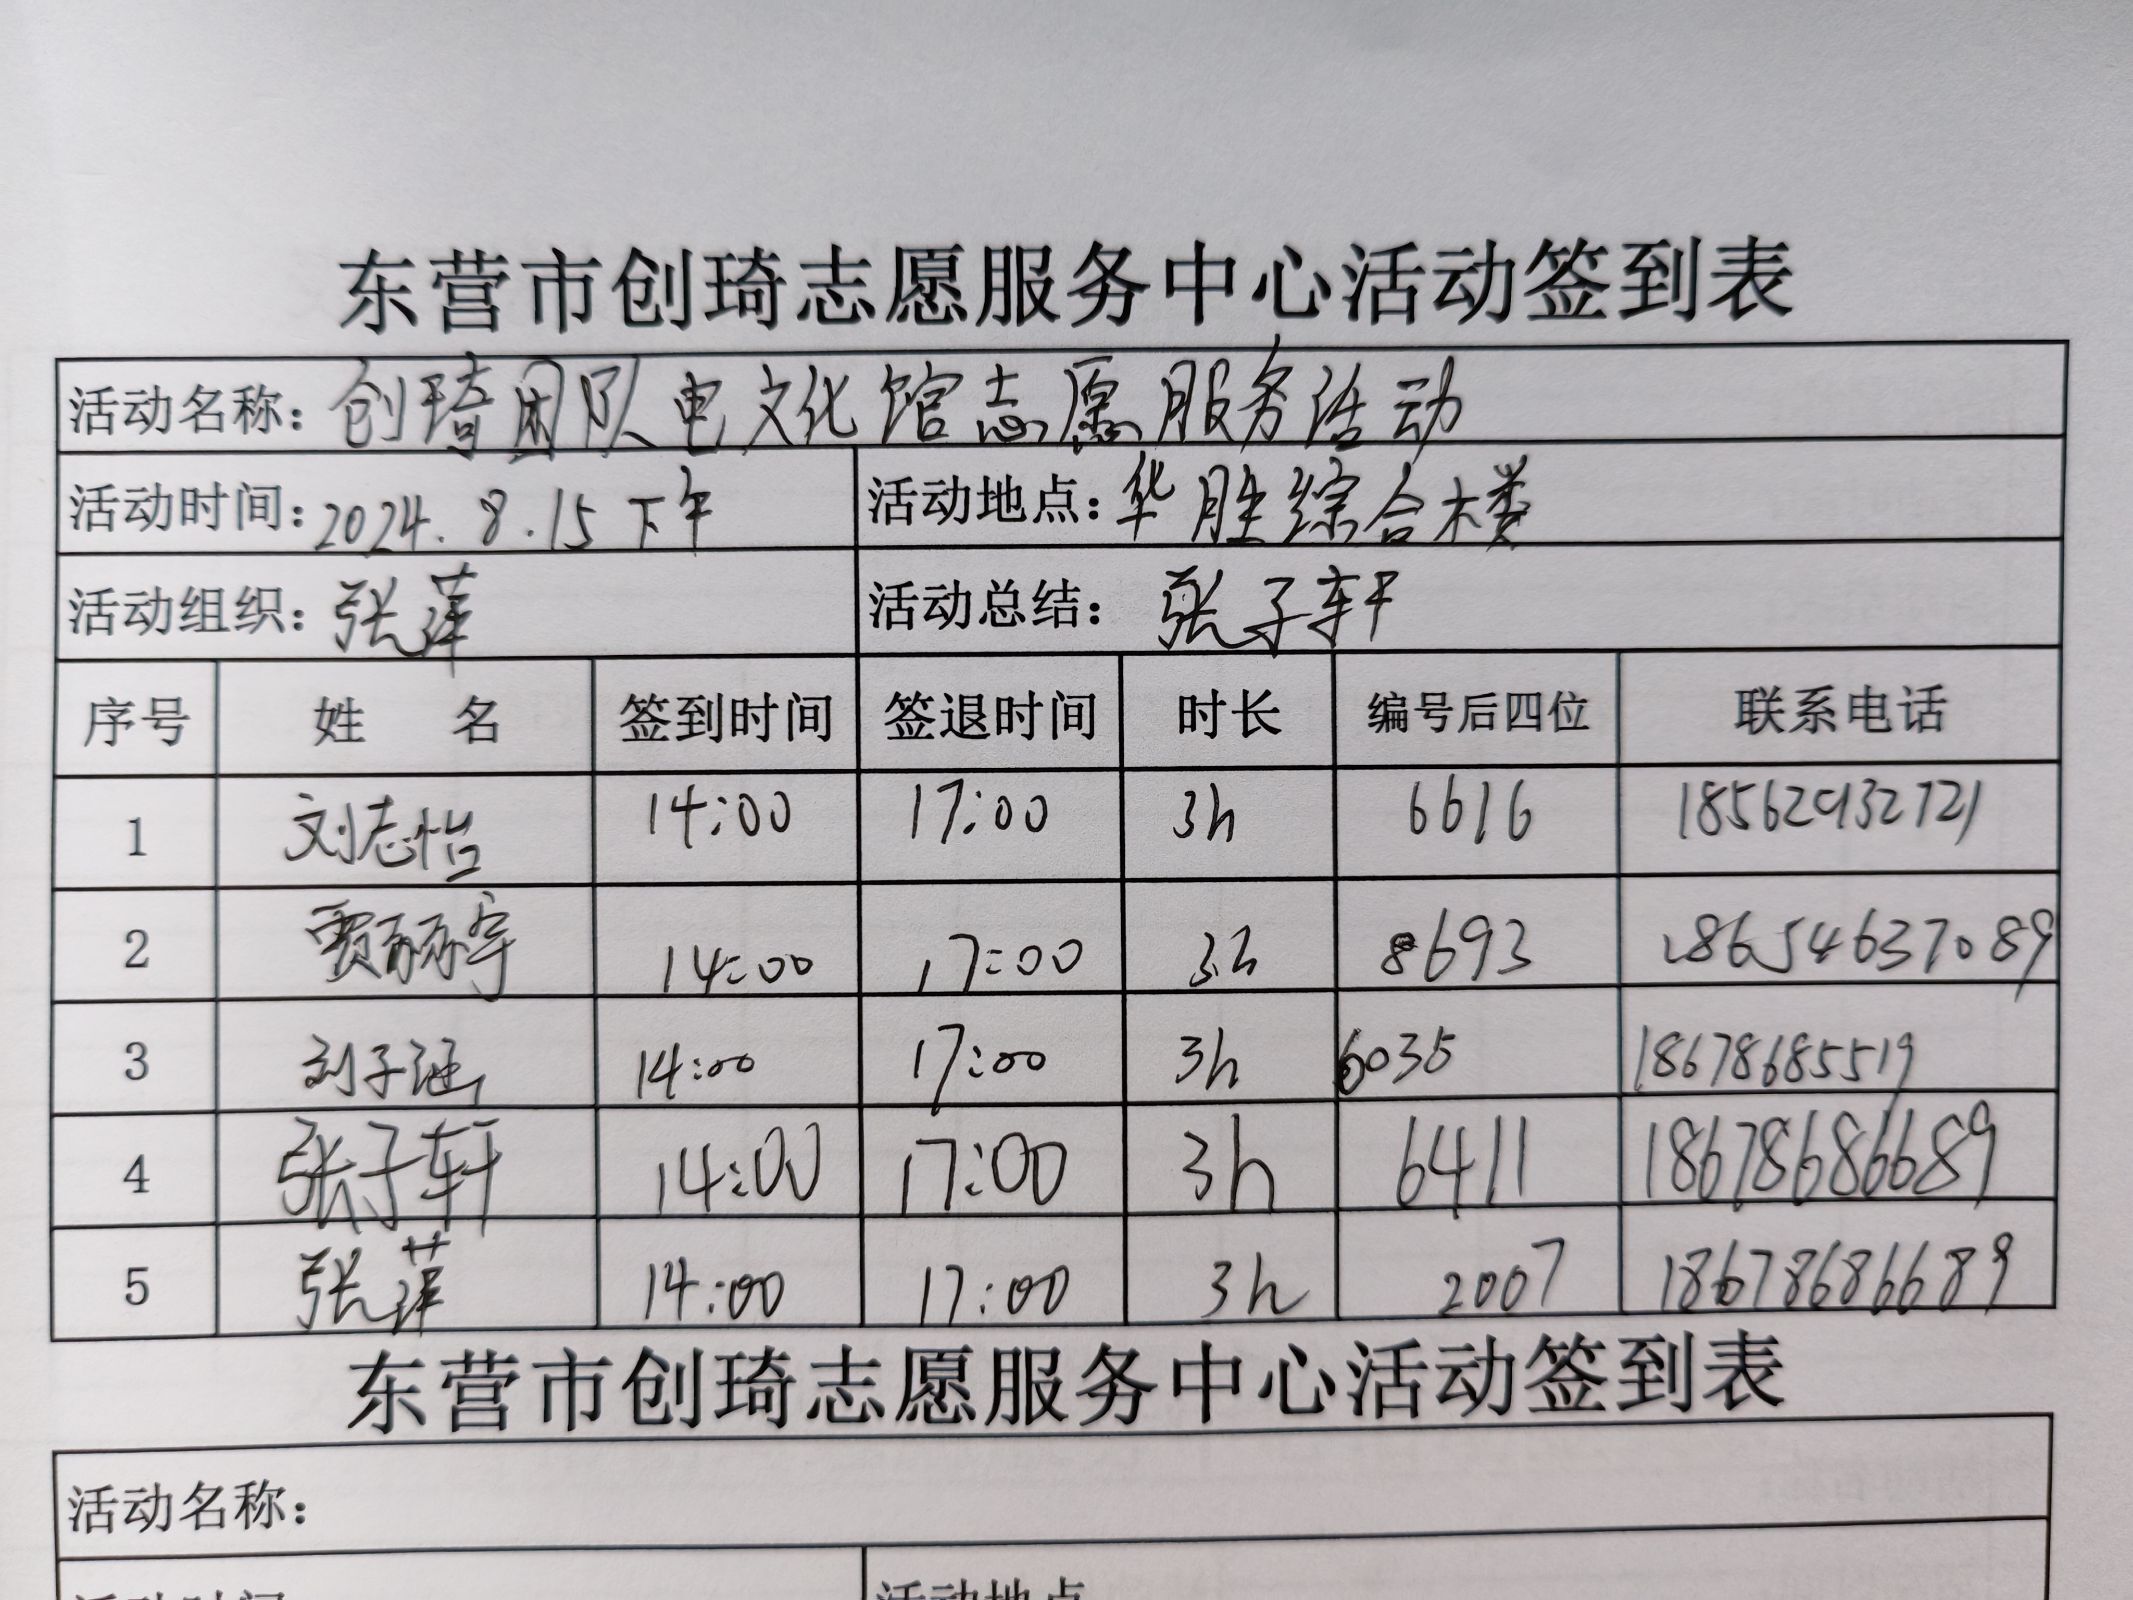 东营市创琦志愿服务中心活动签到表
活动名称：创琦团队电文化馆志愿服务活动
活动时间：2024.8.15下午 活动地点：华胜综合楼
活动组织：张萍 活动总结：张子轩
序号 姓 名 签到时间 签退时间 时长 编号后四位 联系电话
1 刘志怡 14:00 17:00 3h 6616 18562932721
2 贾 14:00 17:00 3h 8693 18654637089
3 刘子涵 14:00 17:00 3h 6035 18678685519
4 张子轩 14:00 17:00 3h 6411 18678686689
5 张萍 14:00 17:00 3h 2007 18678686689
东营市创琦志愿服务中心活动签到表
活动名称：
活动时间 活动地点